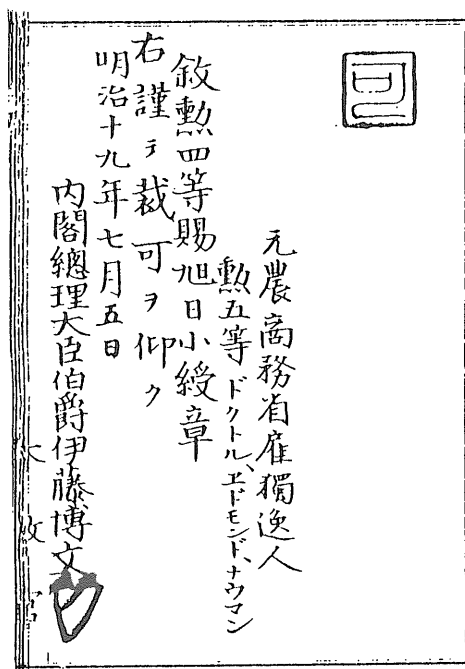 可
元農商務省雇獨逸人
勲五等ドクトル、エドモンド、ナウマン
敘勲四等賜旭日小綬章
右謹テ裁可ヲ仰ク
明治十九年七月五日
内閣總理大臣伯爵伊藤博文